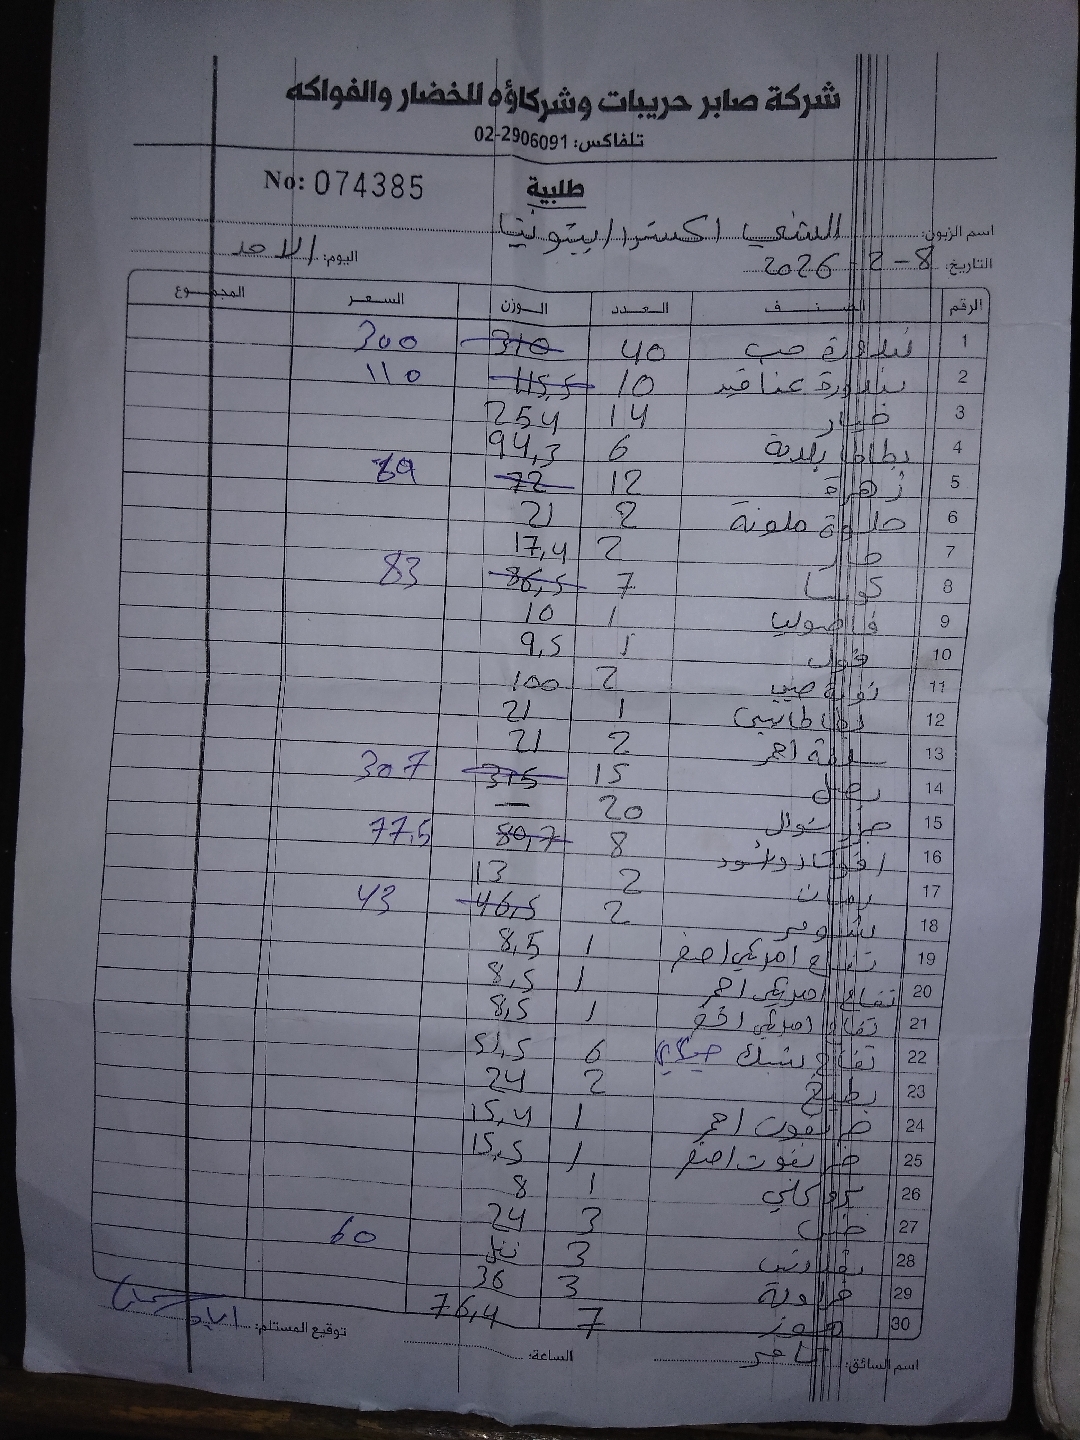 شركة صابر حريبات وشركاؤه للخضار والفواكه
تلفاكس: 02-2906091
No: 074385
طلبية
اسم الزبون: الشني اكسترا / بيتونيا
اليوم: الاحد
التاريخ: 8-2-2026
الرقم الصنف العدد الوزن السعر المجموع
1 بندورة حب 40 310 300
2 بندورة عناقيد 10 115,5 110
3 خيار 14 254
4 بطاطا بلدية 6 94,3
5 زهرة 12 72 69
6 حلوة ملونة 2 21
7 حار 2 17,4
8 كوسا 7 86,5 83
9 فاصوليا 1 10
10 فول 1 9,5
11 2 100
12 1 21
13 احمر 2 21
14 بصل 15 315 307
15 جزر شوال 20 —
16 افوكادو 8 80,7 77,5
17 رمان 2 13
18 شومر 2 46,5 43
19 تفاح امريكي اصفر 1 8,5
20 تفاح امريكي احمر 1 8,5
21 تفاح امريكي 1 8,5
22 تفاح 6 51,5
23 بطيخ 2 24
24 جريفوت احمر 1 15,4
25 جريفوت اصفر 1 15,5
26 1 8
27 خس 3 24
28 بقدونس 3 60
29 فراولة 3 36
30 موز 7 76,4
اسم السائق: الساعة: توقيع المستلم: